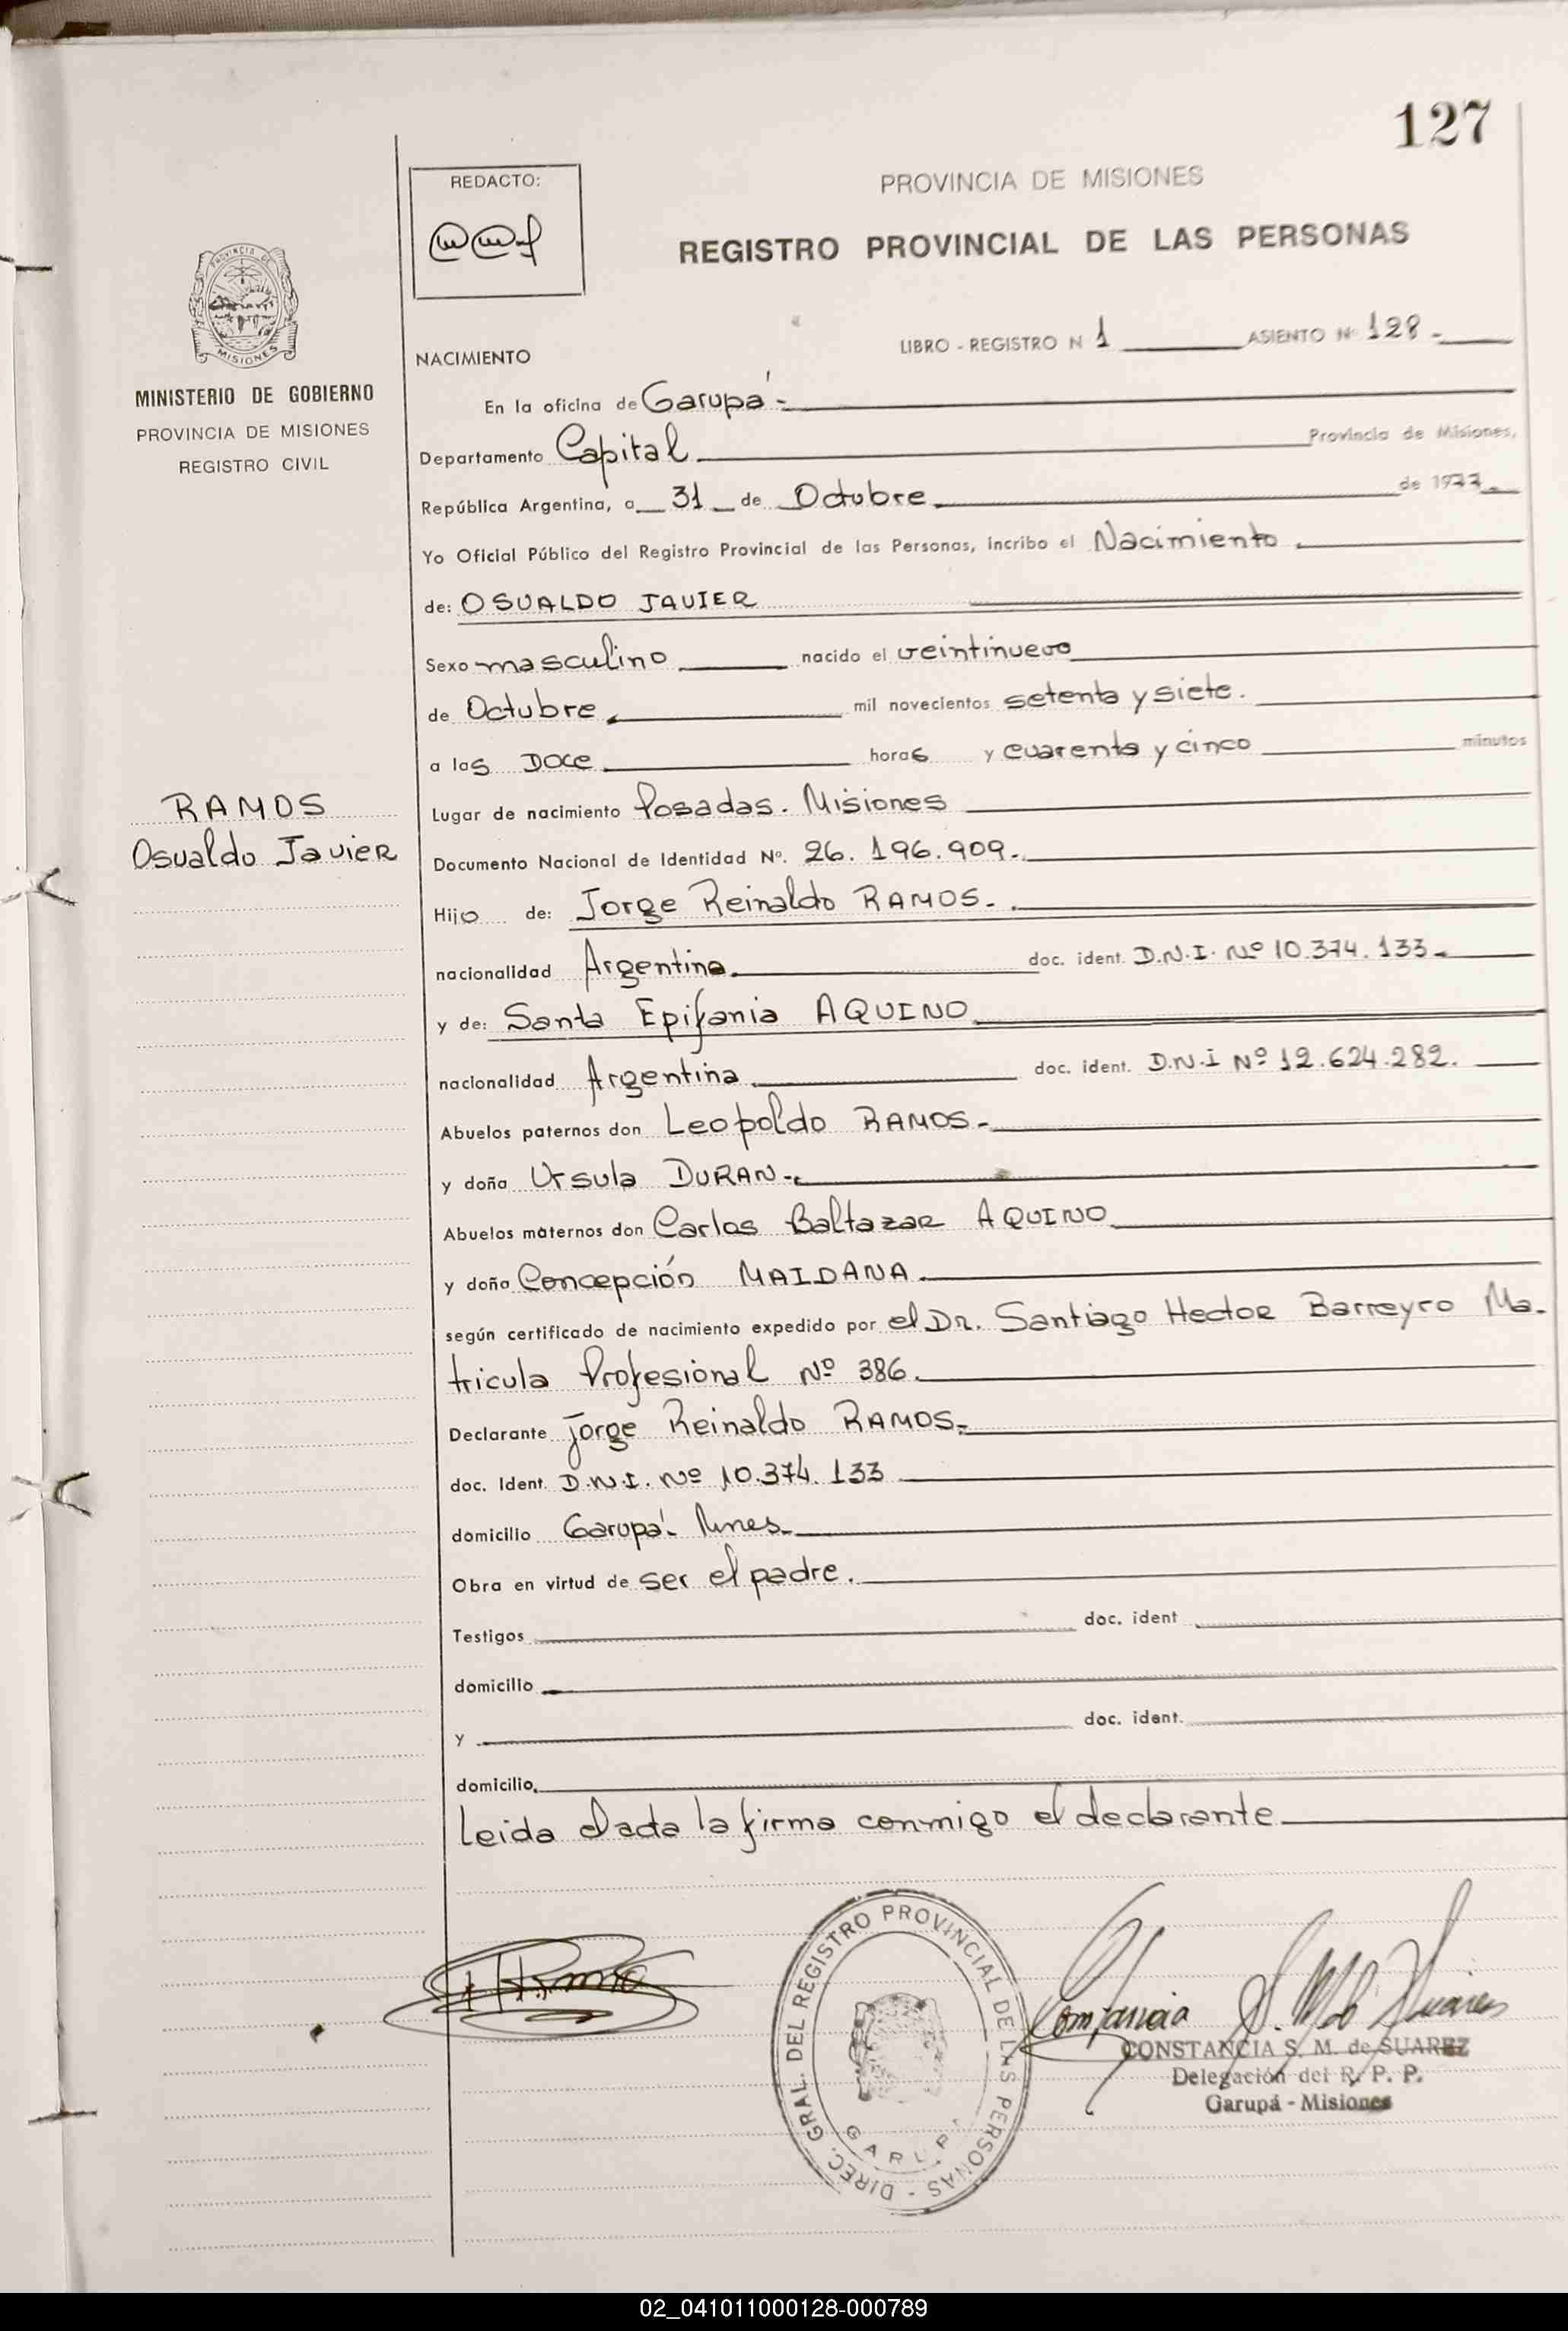 127
REDACTO:
PROVINCIA DE MISIONES
REGISTRO PROVINCIAL DE LAS PERSONAS
PROVINCIA DE
MISIONES
MINISTERIO DE GOBIERNO
PROVINCIA DE MISIONES
REGISTRO CIVIL
LIBRO - REGISTRO N 1 ASIENTO Nº 128-
NACIMIENTO
En la oficina de Garupá-
Departamento Capital Provincia de Misiones,
República Argentina, a 31 de Octubre de 1977
Yo Oficial Público del Registro Provincial de las Personas, incribo el Nacimiento
de: OSUALDO JAVIER
Sexo masculino nacido el veintinueve
de Octubre mil novecientos setenta y siete.
a las Doce horas y cuarenta y cinco minutos
RAMOS
Osualdo Javier
Lugar de nacimiento Posadas. Misiones
Documento Nacional de Identidad Nº. 26.196.909.
Hijo de: Jorge Reinaldo RAMOS-.
nacionalidad Argentina. doc. ident. D.N.I. Nº 10.374.133-
y de: Santa Epifania AQUINO
nacionalidad Argentina doc. ident. D.N.I Nº 12.624.282.
Abuelos paternos don Leopoldo RAMOS-
y doña Ursula DURAN-
Abuelos maternos don Carlos Baltazar AQUINO
y doña Concepción MAIDANA.
según certificado de nacimiento expedido por el Dr. Santiago Hector Barreyro Ma-
tricula Profesional Nº 386.
Declarante Jorge Reinaldo RAMOS-
doc. Ident. D.N.I. Nº 10.374.133
domicilio Garupá- Mnes.
Obra en virtud de ser el padre.
Testigos doc. ident
domicilio
y doc. ident.
domicilio.
Leida el acta la firma conmigo el declarante
DIREC. GRAL. DEL REGISTRO PROVINCIAL DE LAS PERSONAS -
GARUPA
CONSTANCIA S. M. de SUAREZ
Delegación del R. P. P.
Garupá - Misiones
02_041011000128-000789